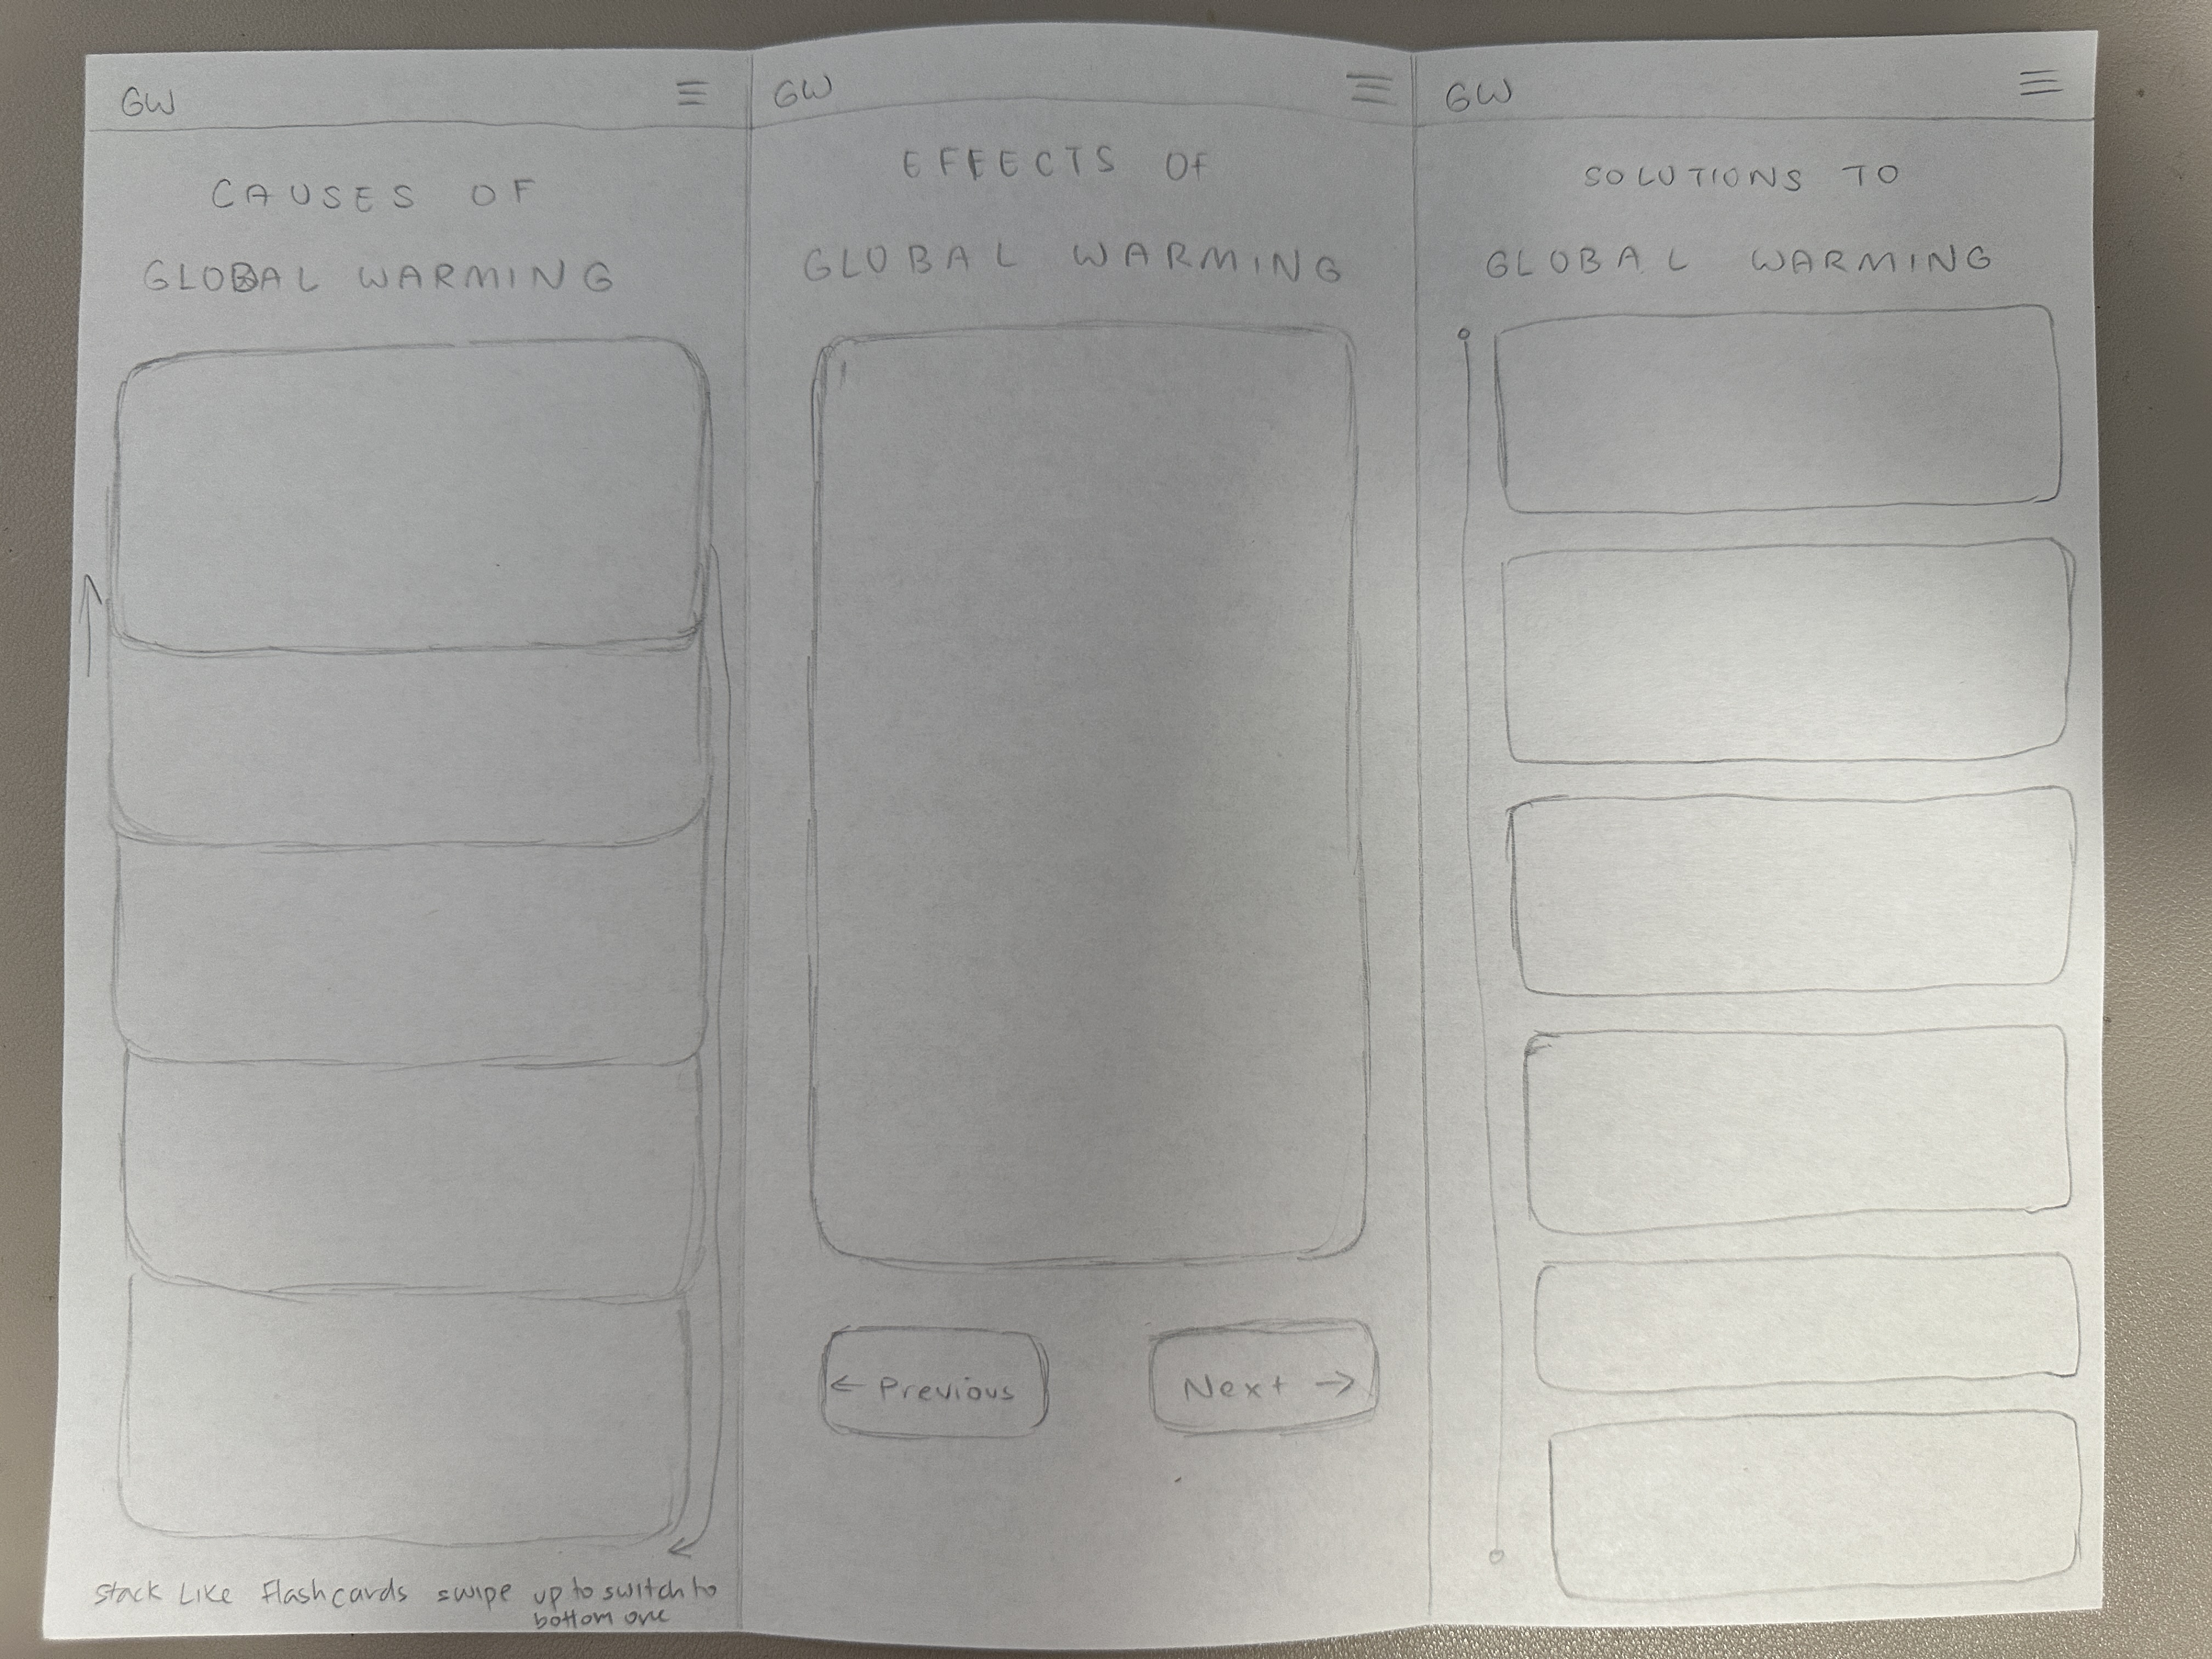 GW
CAUSES OF
GLOBAL WARMING
stack like flashcards swipe up to switch to
bottom one
GW
EFFECTS OF
GLOBAL WARMING
← Previous
Next →
GW
SOLUTIONS TO
GLOBAL WARMING